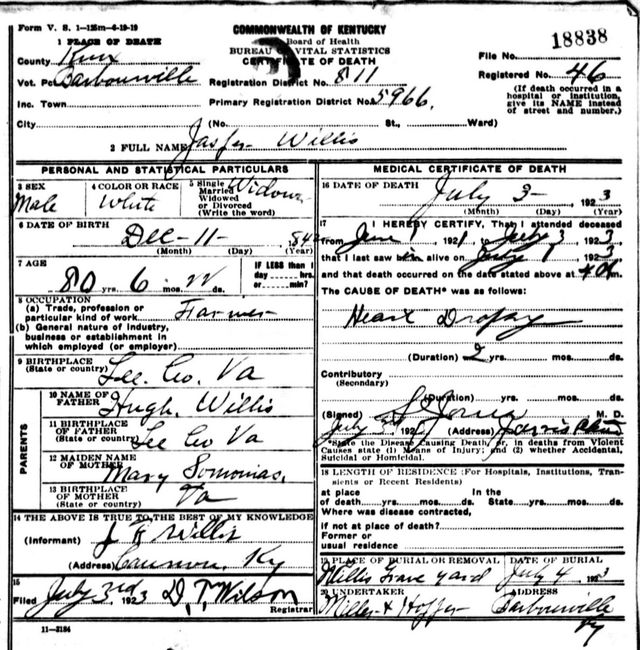 Form V. S. 1-125m-6-19-19
COMMONWEALTH OF KENTUCKY
Board of Health
BUREAU OF VITAL STATISTICS
CERTIFICATE OF DEATH
18838
1 PLACE OF DEATH
County Knox
Vot. Pct. Barbourville
Inc. Town
City (No. St., Ward)
Registration District No. 811
Primary Registration District No. 5966
File No.
Registered No. 46
(If death occurred in a hospital or institution, give its NAME instead of street and number.)
2 FULL NAME Jasper Willis
PERSONAL AND STATISTICAL PARTICULARS
3 SEX Male
4 COLOR OR RACE White
5 Single Married Widowed or Divorced (Write the word) Widower
6 DATE OF BIRTH
Dec-11- 1842
(Month) (Day) (Year)
7 AGE
80 yrs. 6 mos. 22 ds.
IF LESS than 1 day----hrs. or----min.?
8 OCCUPATION
(a) Trade, profession or particular kind of work Farmer
(b) General nature of Industry, business or establishment in which employed (or employer)
9 BIRTHPLACE
(State or country) Lee Co. Va
PARENTS
10 NAME OF FATHER Hugh Willis
11 BIRTHPLACE OF FATHER (State or country) Lee Co Va
12 MAIDEN NAME OF MOTHER Mary
13 BIRTHPLACE OF MOTHER (State or country) Va
14 THE ABOVE IS TRUE TO THE BEST OF MY KNOWLEDGE
(Informant) Willis
(Address) Cannon, Ky
15
Filed July 3rd 1923 D. T. Wilson
Registrar
11-3184
MEDICAL CERTIFICATE OF DEATH
16 DATE OF DEATH
July 3- 1923
(Month) (Day) (Year)
17 I HEREBY CERTIFY, That I attended deceased
from June 1 1921 to July 3 1923
that I last saw him alive on July 1 1923
and that death occurred on the date stated above at m.
The CAUSE OF DEATH* was as follows:
Heart Dropsy
(Duration) 2 yrs. mos. ds.
Contributory
(Secondary)
(Duration) yrs. mos. ds.
(Signed) Jones M. D.
July 192 (Address)
*State the Disease Causing Death, or, in deaths from Violent Causes state (1) Means of Injury; and (2) whether Accidental, Suicidal or Homicidal.
18 LENGTH OF RESIDENCE (For Hospitals, Institutions, Transients or Recent Residents)
at place of death yrs. mos. ds. In the State yrs. mos. ds.
Where was disease contracted,
if not at place of death?
Former or usual residence
19 PLACE OF BURIAL OR REMOVAL DATE OF BURIAL
Willis Grave yard July 4 1923
20 UNDERTAKER ADDRESS
Miller & Hopper Barbourville
Ky